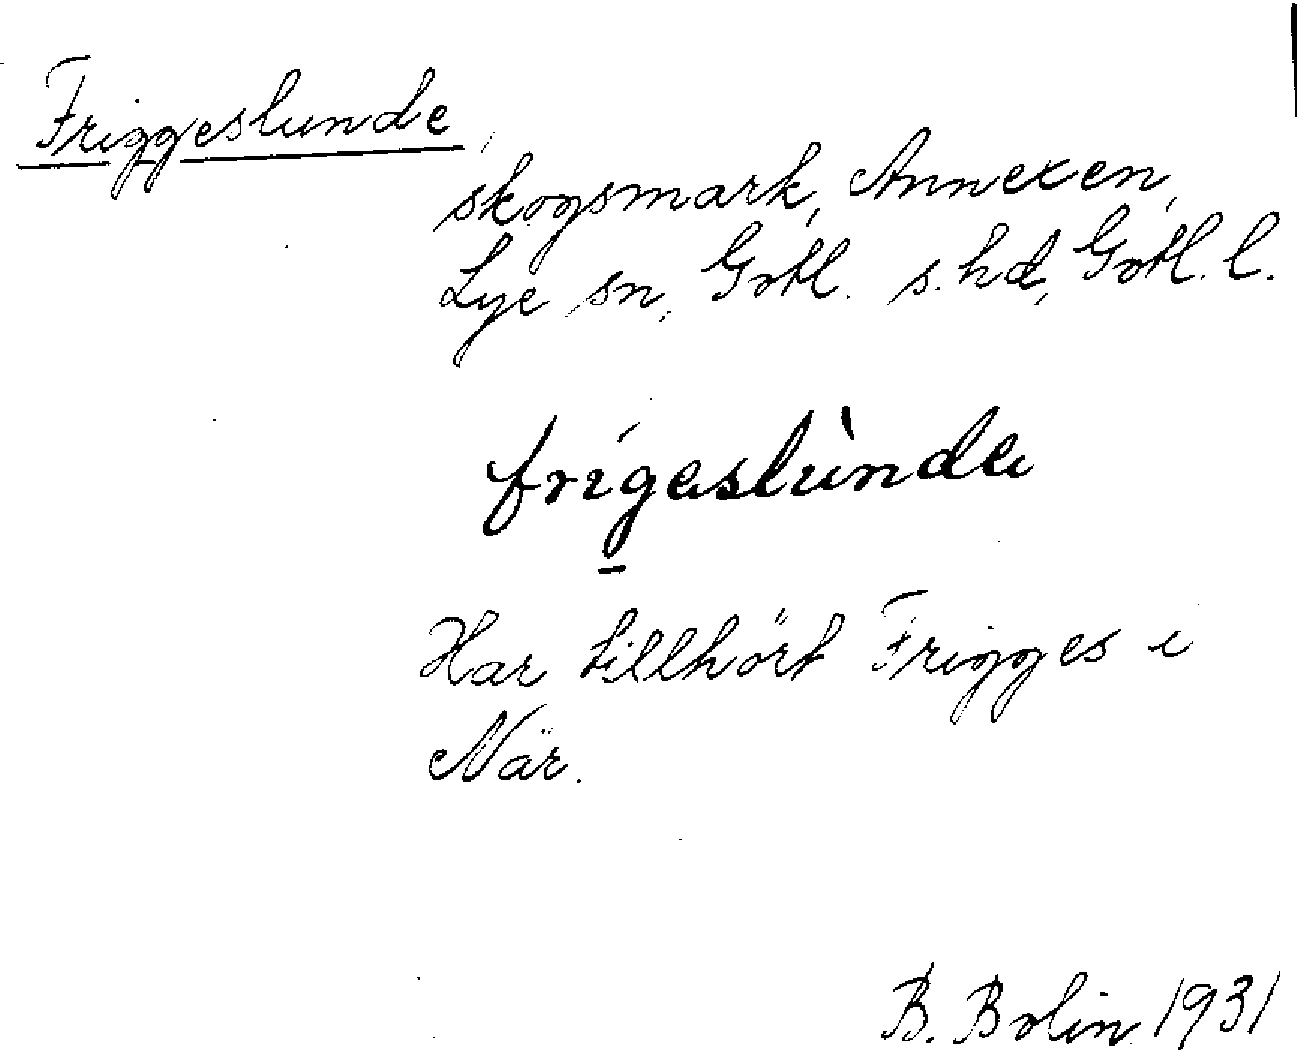 Friggeslunde,
skogsmark, Annexen,
Lye sn, Gotl. s. hd, Gotl. l.
frigeslùnde
Har tillhört Frigges i
När.
B. Bolin 1931